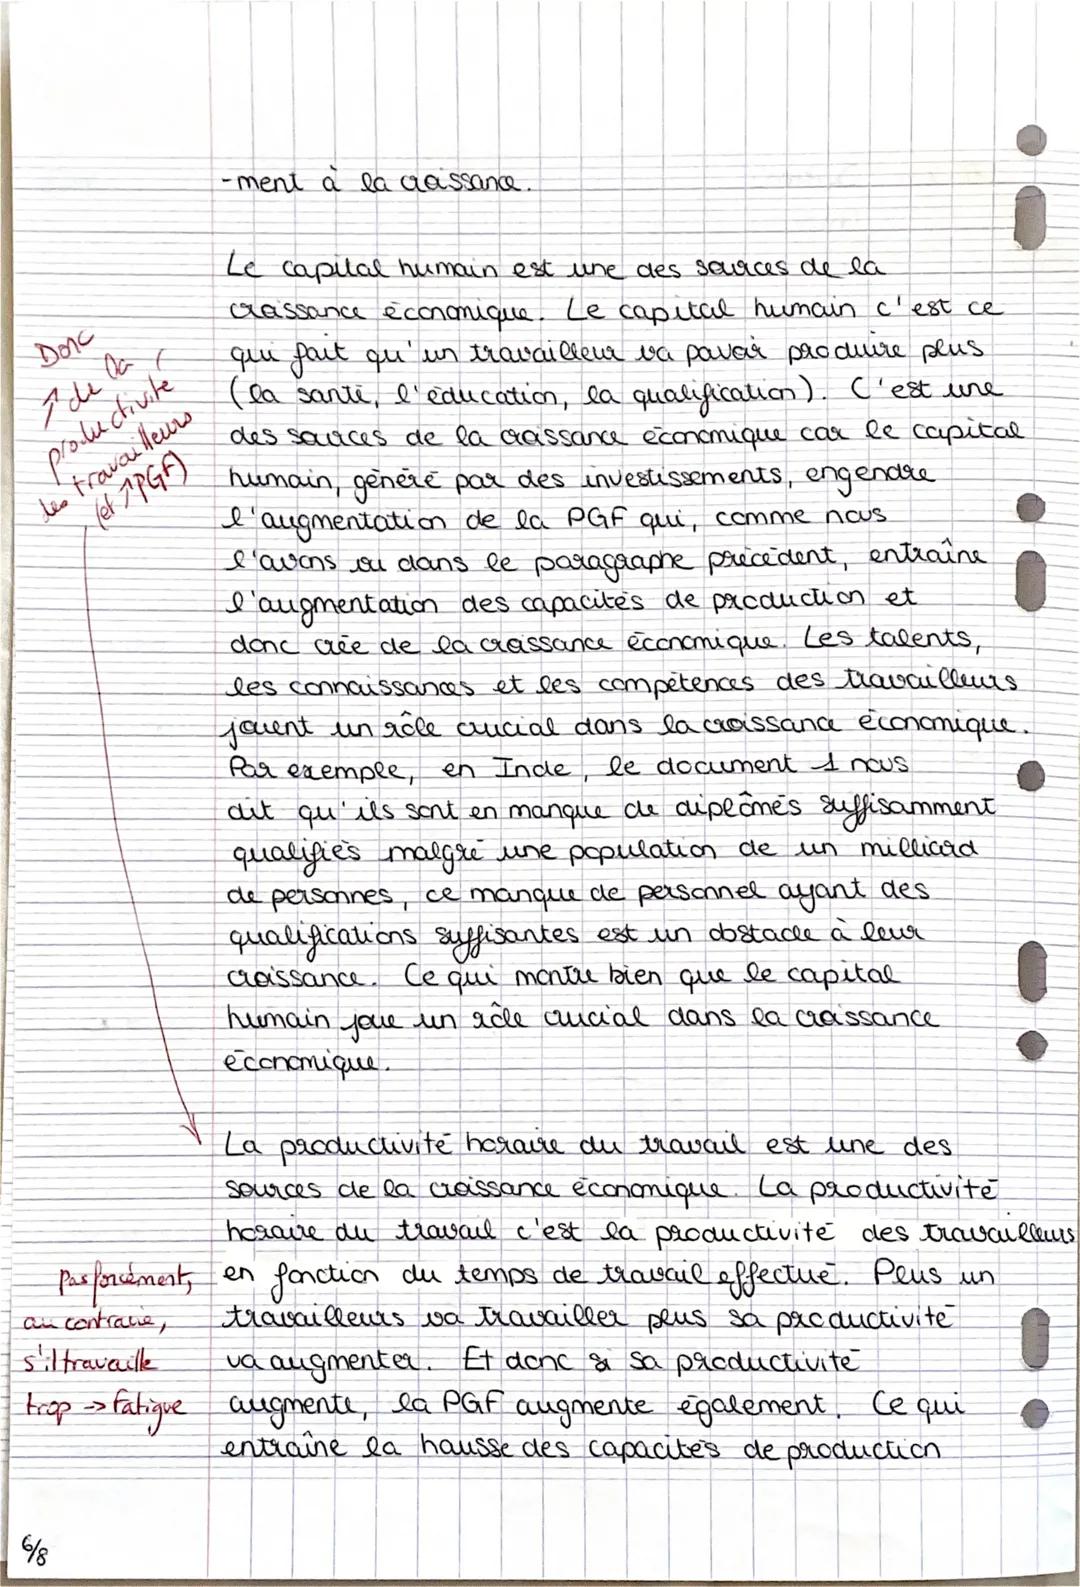 -ment à la croissance.
Le capital humain est une des sources de la
croissance économique. Le capital humain c'est ce
qui fait qu'un travailleur va pouvoir produire plus
(la santé, l'éducation, la qualification). C'est une
des sources de la croissance économique car le capital
humain, généré par des investissements, engendre
l'augmentation de la PGF qui, comme nous
l'avons vu dans le paragraphe précédent, entraîne
l'augmentation des capacités de production et
donc crée de la croissance économique. Les talents,
les connaissances et les compétences des travailleurs
jouent un rôle crucial dans la croissance économique.
Par exemple, en Inde, le document 1 nous
dit qu'ils sont en manque de diplômés suffisamment
qualifiés malgré une population de un milliard
de personnes, ce manque de personnel ayant des
qualifications suffisantes est un obstacle à leur
croissance. Ce qui montre bien que le capital
humain joue un rôle crucial dans la croissance
économique.
Donc
↑ de la
productivité
des travailleurs
(et ↑PGF)
La productivité horaire du travail est une des
sources de la croissance économique. La productivité
horaire du travail c'est la productivité des travailleurs
en fonction du temps de travail effectué. Plus un
travailleurs va travailler plus sa productivité
va augmenter. Et donc si sa productivité
augmente, la PGF augmente également. Ce qui
entraîne la hausse des capacités de production
Pas forcément,
au contraire,
s'il travaille
trop -> fatigue
6/8